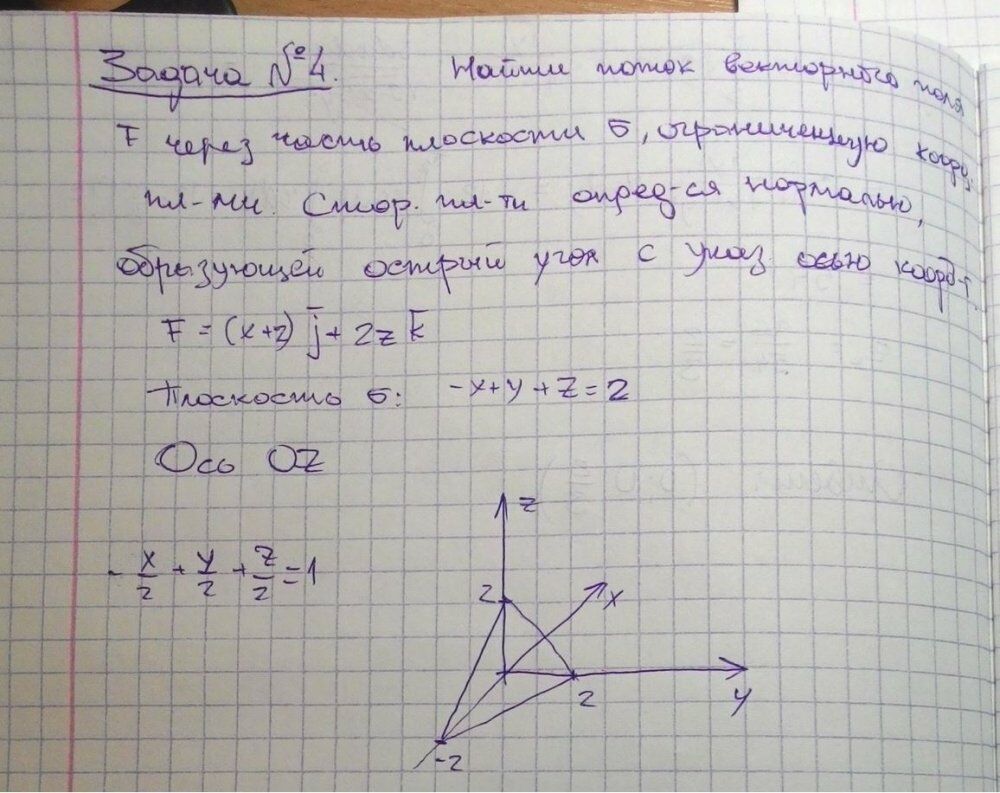 Задача №4. Найти поток векторного поля
F через часть плоскости б, ограниченную коорд.
пл-ми. Стор. пл-ти опред-ся нормалью,
образующей острый угол с указ. осью коорд-т.
F = (x+z) j̅ + 2z k̅
Плоскость б: -x+y+z=2
Ось OZ
- x/2 + y/2 + z/2 = 1
z
2
x
2
y
-2